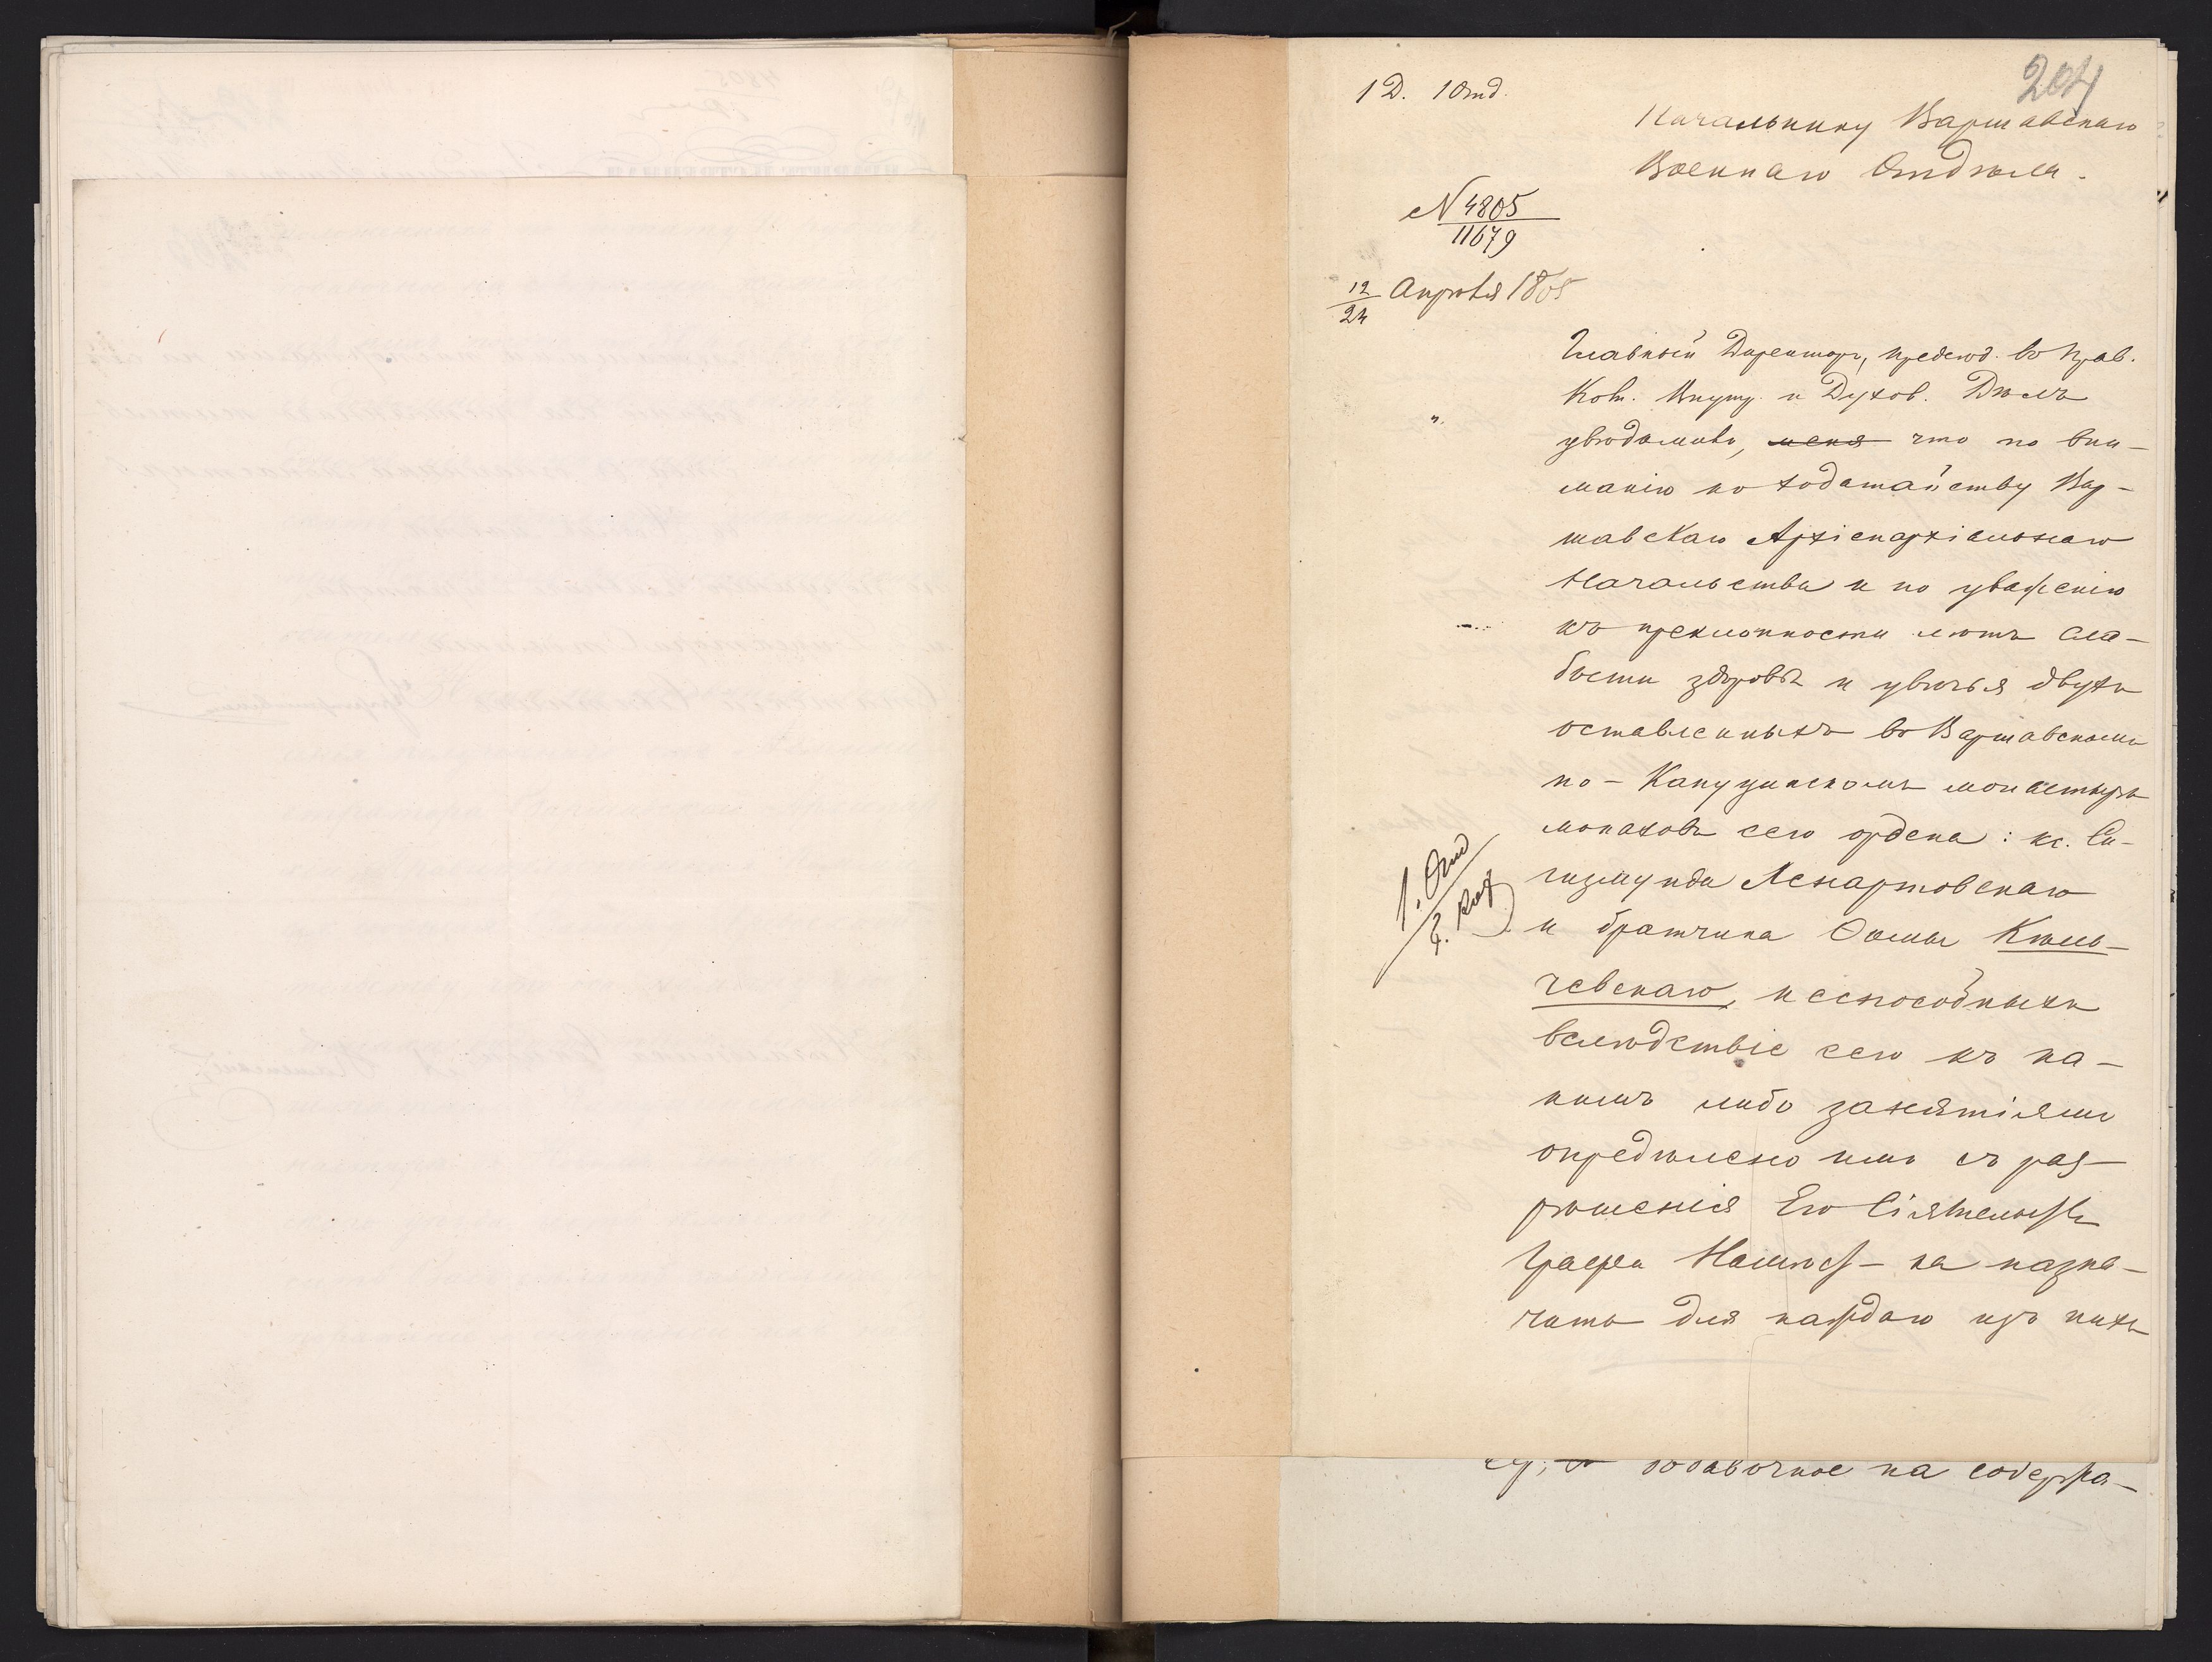 204
1 Д. 1 Отд.
Начальнику Варшавскаго
Военнаго Отдѣла.
№ 4805
11679
12
24
Апрѣля 1865
Главный Директоръ, предсѣд. въ Прав.
Ком. Внутр. и Духов. Дѣлъ
увѣдомивъ, меня что по вни-
манію ко ходатайству Вар-
шавскаго Архіепархіальнаго
Начальства и по уваженію
къ преклонности лѣтъ сла-
бости здоровья и увѣчья двухъ
оставленныхъ въ Варшавскомъ
по-Капуцинскомъ монастырѣ
монаховъ сего ордена: кс. Си-
гизмунда Ленартовскаго
и братчика Ѳомы Кѣль-
чевскаго, неспособныхъ
вслѣдствіе сего къ ка-
кимъ либо занятіямъ
опредѣлено имъ съ раз-
рѣшенія Его Сіятельства
Графа Намѣст-ка назна-
чить для каждаго изъ нихъ
1. Отд
добавочное на содержа-